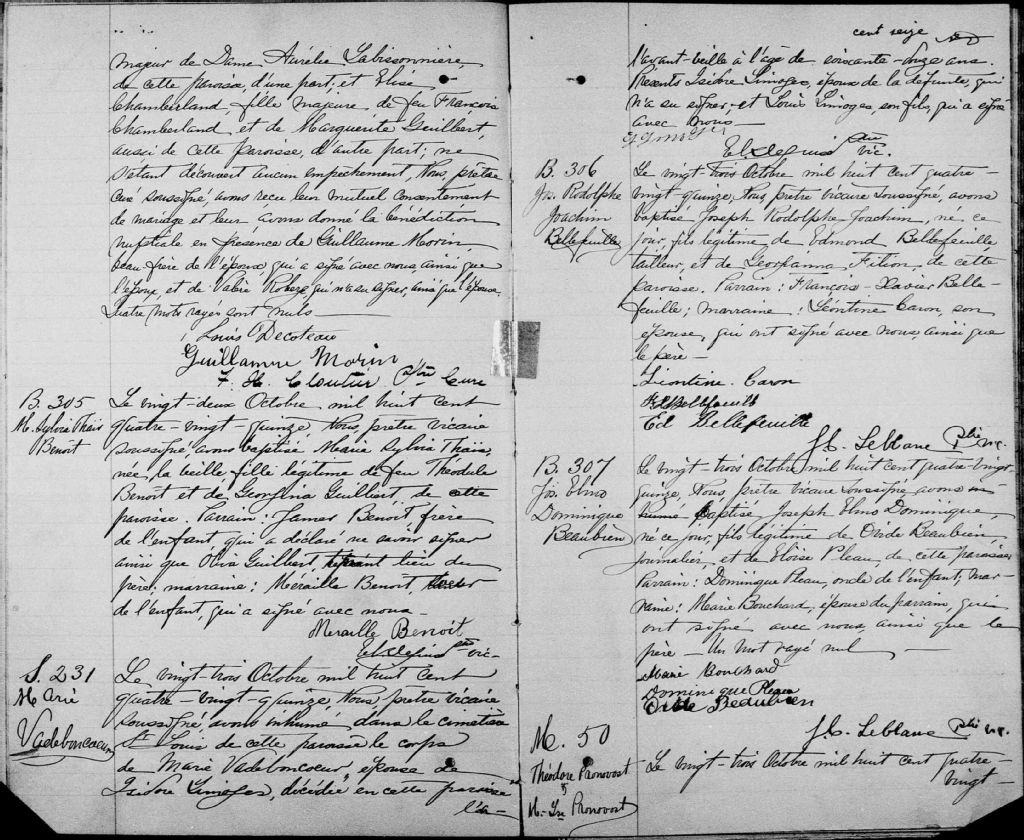 majeur de Dame Aurélie Labissonnière,
de cette paroisse, d'une part; et Elise
Chamberland, fille majeure de feu François
Chamberland et de Marguerite Guilbert,
aussi de cette paroisse, d'autre part; ne
s'étant découvert aucun empêchement, Nous, prêtre
curé soussigné, avons reçu leur mutuel consentement
de mariage et leur avons donné la bénédiction
nuptiale en présence de Guillaume Morin,
beau frère de l'époux, qui a signé avec nous, ainsi que
l'époux, et de Valère qui n'a su signer, ainsi que l'épouse.
Quatre mots rayés sont nuls —
Louis Decoteau
Guillaume Morin
F. X. Cloutier Ptre Curé
B. 305
M. Sylvia Thaïs
Benoit
Le vingt-deux Octobre mil huit cent
quatre-vingt-quinze, Nous, prêtre vicaire
soussigné, avons baptisé Marie Sylvia Thaïs,
née, la veille, fille légitime de feu Théodule
Benoit et de Georgina Guilbert, de cette
paroisse. Parrain: James Benoit, frère
de l'enfant qui a déclaré ne savoir signer
ainsi que Oliva Guilbert, tenant lieu du
père; marraine: Meraille Benoit, soeur
de l'enfant, qui a signé avec nous —
Meraille Benoit
ptre vic.
S. 231
Marie
Vadeboncoeur
Le vingt-trois Octobre mil huit cent
quatre-vingt-quinze, Nous, prêtre vicaire
soussigné, avons inhumé dans le cimetière
St Louis de cette paroisse le corps
de Marie Vadeboncoeur, épouse de
Isidore Limoges, décédée en cette paroisse
l'a-
cent seize
l'avant-veille à l'âge de soixante-onze ans.
Présents Isidore Limoges, époux de la défunte, qui
n'a su signer et Louis Limoges, son fils, qui a signé
avec nous —
ptre
vic.
B. 306
Jos. Rodolphe
Joachim
Bellefeuille
Le vingt-trois Octobre mil huit cent quatre-
vingt quinze, Nous, prêtre vicaire soussigné, avons
baptisé Joseph Rodolphe Joachim, né ce
jour, fils légitime de Edmond Bellefeuille,
tailleur, et de Georgianna Fition, de cette
paroisse. Parrain: François-Xavier Belle-
feuille; marraine: Léontine Caron, son
épouse, qui ont signé avec nous, ainsi que
le père —
Léontine Caron
F X Bellefeuille
Ed Bellefeuille
H. Leblanc Ptre vic.
B. 307
Jos. Elmo
Dominique
Beaubien
Le vingt-trois Octobre mil huit cent quatre-vingt-
quinze, Nous, prêtre vicaire soussigné avons in
humé baptisé Joseph Elmo Dominique,
né ce jour, fils légitime de Ovide Beaubien,
journalier, et de Eloïse Pleau, de cette paroisse
Parrain: Dominique Pleau, oncle de l'enfant; mar-
raine: Marie Bouchard, épouse du parrain, qui
ont signé avec nous, ainsi que le
père — Un mot rayé nul —
Marie Bouchard
Dominique Pleau
Ovide Beaubien
H. Leblanc Ptre vic.
M. 50
Théodore Pronovost
&
M. Pronovost
Le vingt-trois Octobre mil huit cent quatre-
vingt-